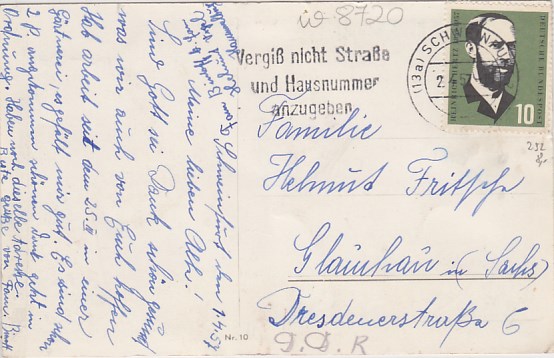 w 8720
(13a) SCHWEINFURT
2.
Vergiß nicht Straße
und Hausnummer
anzugeben
DEUTSCHE BUNDESPOST
HEINRICH HERTZ
10
232
Familie
Helmut Fritsche
Glauchau in (Sachs)
Dresdenerstraße 6
D.D.R
Nr. 10
Schweinfurt den 1.4.57
Meine lieben All.!
Sind Gott sei Dank alle gesund
was wir auch von Euch hoffen
Hab arbeit seit dem 25.II in einer
Gärtnerei, es gefällt mir gut. Es sind
2 P. angekommen schönen Dank geht in
Ordnung. Haben noch dieselbe Adresse.
Beste Grüße von Fam.